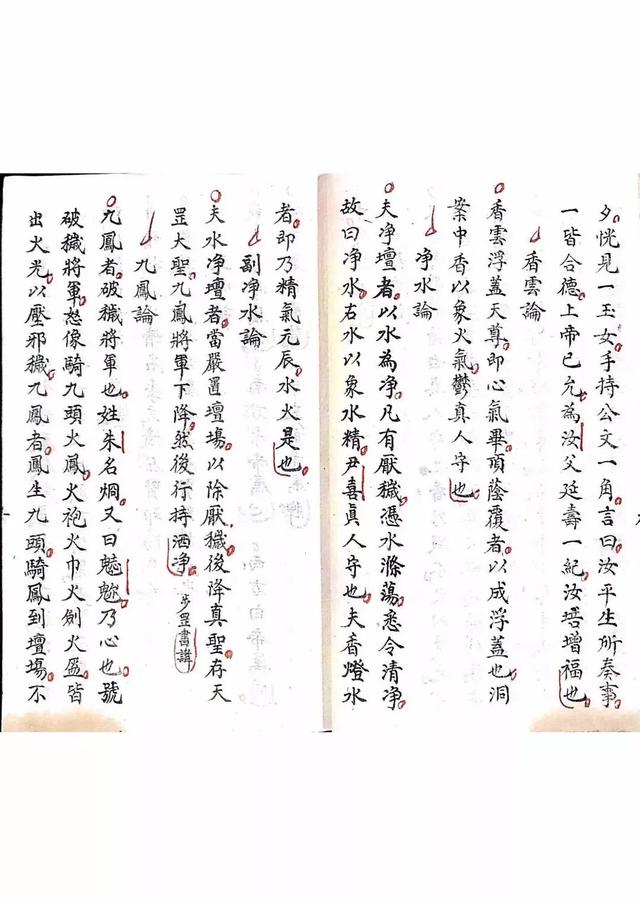 夕恍見一玉女手持公文一角言曰汝平生所奏事
一皆合德上帝已允為汝父延壽一紀汝增增福也
香雲論
香雲浮蓋天尊即心氣畢頂蔭覆者以成浮蓋也洞
案中香以象火氣鬱真人守也
淨水論
夫净壇者以水為净凡有厭穢憑水滌蕩悉令清净
故曰净水右水以象水精尹喜真人守也夫香燈水
者即乃精氣元辰水火是也
副净水論
夫水净壇者當嚴置壇場以除厭穢後降真聖存天
罡大聖九鳳將軍下降然後行持洒净 步罡書諱
九鳳論
九鳳者破穢將軍也姓朱名烱又曰魅魀乃心也號
破穢將軍怒像騎九頭火鳳火袍火巾火劍火盔皆
出火光以壓邪穢九鳳者鳳生九頭騎鳳到壇場不